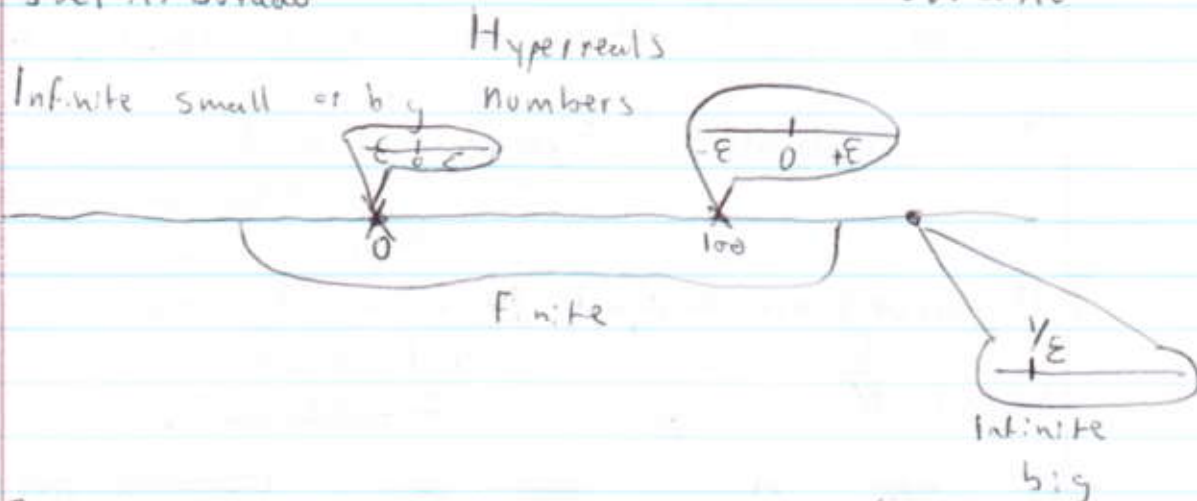 Hyperreals
Infinite small or big numbers
-ε 0 ε
-ε 0 +ε
0
100
Finite
1/ε
Infinite
big